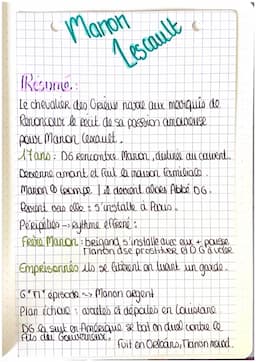 Manon
Lescault
Résumé :
Le chevalier des Grieux narre aux marquis de
Renoncour le récit de sa passion amoureuse
pour Manon Lescault.
17 ans : DG rencontre Manon, destinée au couvent.
Devienne amant et fuit la maison familiale.
Manon le trompe, il devient alors Abbé DG.
Revient vers elle : s'installe à Paris.
Péripéties → rythme effréné :
Frère Manon : brigand s'installe avec eux + pousse
Manon à se prostituer et DG à voler
Emprisonnés ils se libèrent en tuant un garde.
G* M* épisode → Manon argent
Plan échoue : arrêtés et déportés en Louisiane
DG la suit en Amérique se bat en duel contre le
fils du Gouverneur.
Fuit en Orléans, Manon meurt.